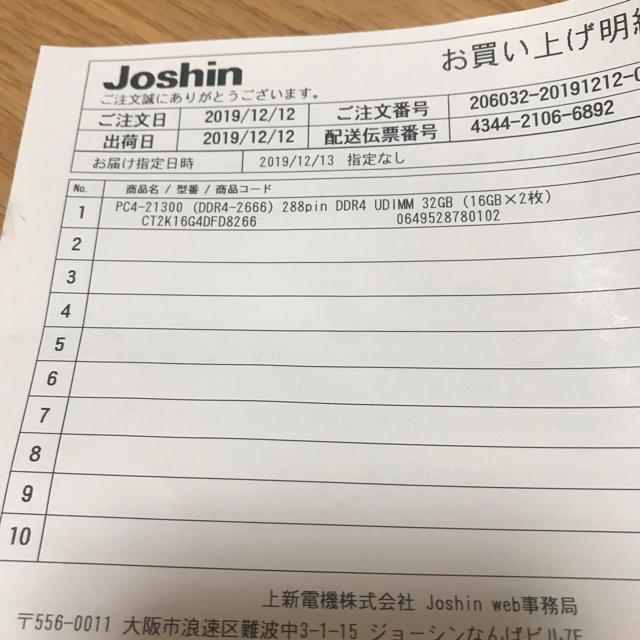 Joshin
お買い上げ明細
ご注文誠にありがとうございます。
ご注文日 2019/12/12 ご注文番号 206032-20191212-0
出荷日 2019/12/12 配送伝票番号 4344-2106-6892
お届け指定日時 2019/12/13 指定なし
No. 商品名 / 型番 / 商品コード
1 PC4-21300 (DDR4-2666) 288pin DDR4 UDIMM 32GB (16GB×2枚)
CT2K16G4DFD8266 0649528780102
2
3
4
5
6
7
8
9
10
上新電機株式会社 Joshin web事務局
〒556-0011 大阪市浪速区難波中3-1-15 ジョーシンなんばビル7F